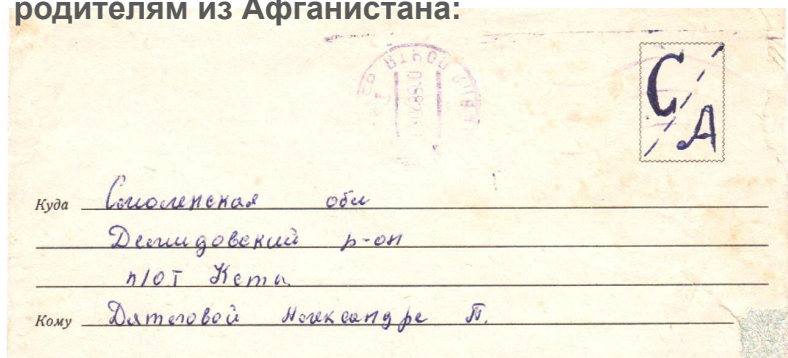 родителям из Афганистана:
С/А
Куда Смоленская обл
Демидовский р-он
п/от
Кому Александре П.